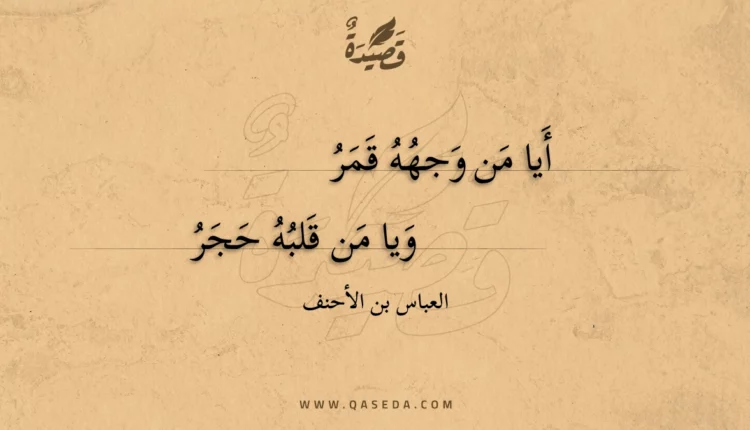 قَصِيدَةٌ
أَيا مَن وَجهُهُ قَمَرُ
وَيا مَن قَلبُهُ حَجَرُ
العباس بن الأحنف
WWW.QASEDA.COM